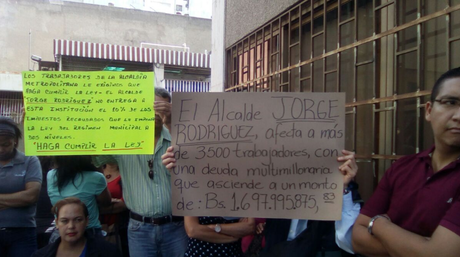 LOS TRABAJADORES DE LA ALCALDIA
METROPOLITANA LE EXIGIMOS QUE
HAGA CUMPLIR LA LEY. EL ALCALDE
JORGE RODRÍGUEZ NO ENTREGA A
ESTA INSTITUCIÓN EL 10% DE LOS
INGRESOS RECAUDADOS QUE LO EMPANA
LA LEY DEL REGIMEN MUNICIPAL A DOS
NIVELES.
"HAGA CUMPLIR LA LEY
El Alcalde JORGE
RODRIGUEZ, afecta a más
de 3500 trabajadores, con
una deuda multimillonaria
que asciende a un monto
de: Bs. 1.697.995.875, 83